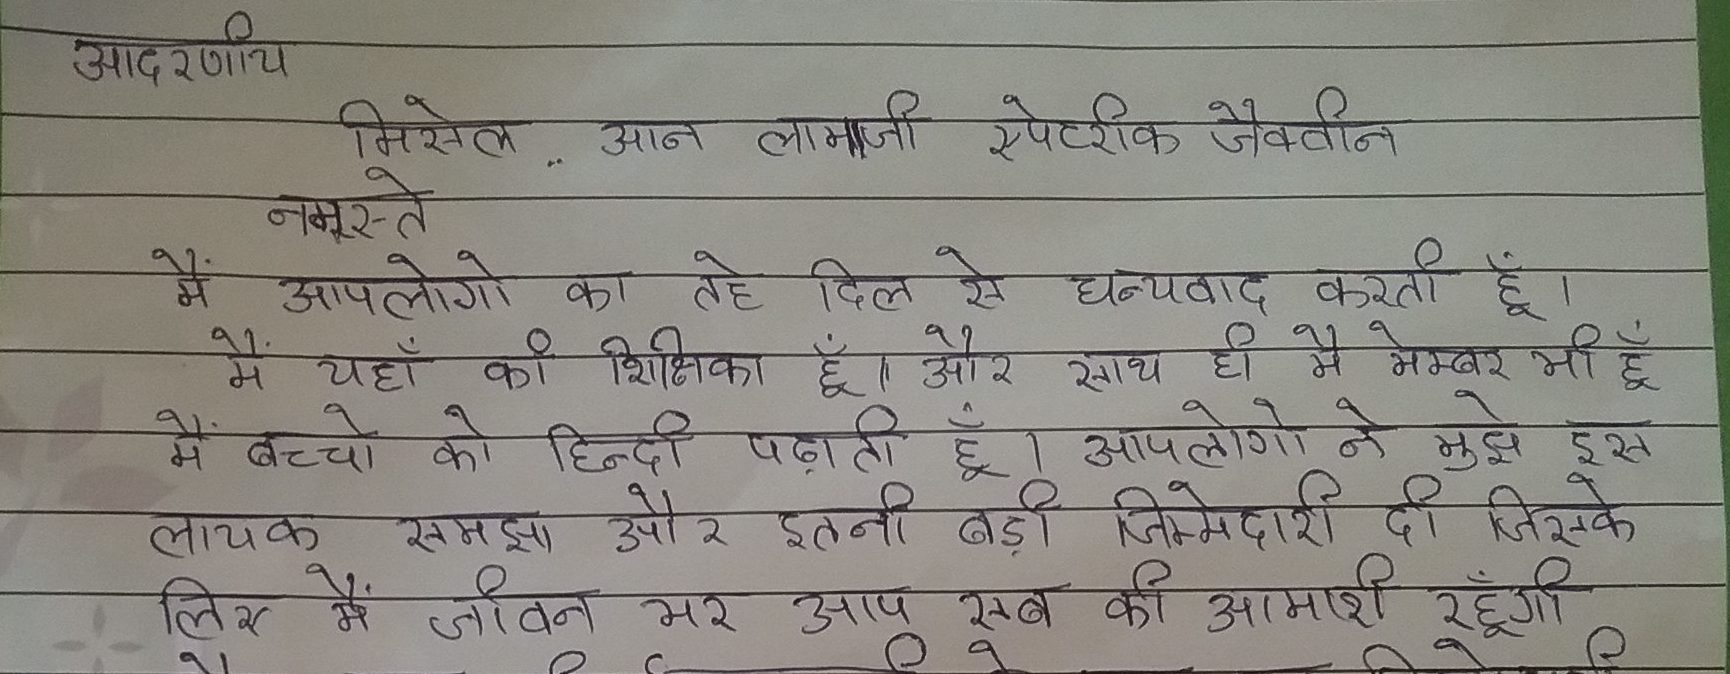 आदरणीय
मिसेल .. आन लामाजी स्पेटरीक जैक्लीन
नमस्ते
मैं आपलोगो का तहे दिल से धन्यवाद करती हूँ।
मैं यहाँ की शिक्षिका हूँ। और साथ ही मै मेम्बर भी हूँ
मैं बच्चो को हिन्दी पढ़ाती हूँ। आपलोगो ने मुझे इस
लायक समझा और इतनी बड़ी जिम्मेदारी दी जिसके
लिए मैं जीवन भर आप सब की आभारी रहूँगी